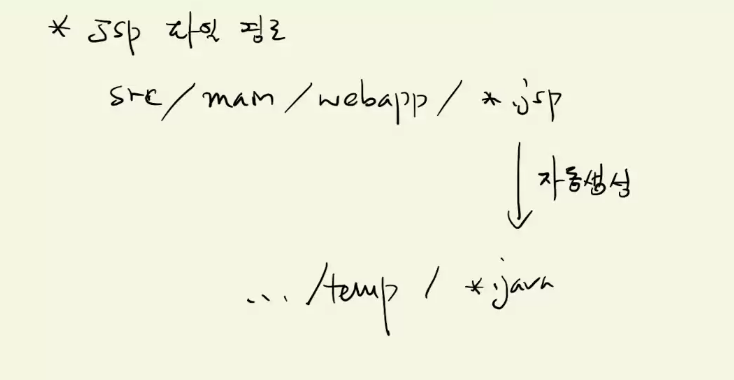 * JSP 파일 경로
src/main/webapp/ *.jsp
자동생성
... /temp / *.java